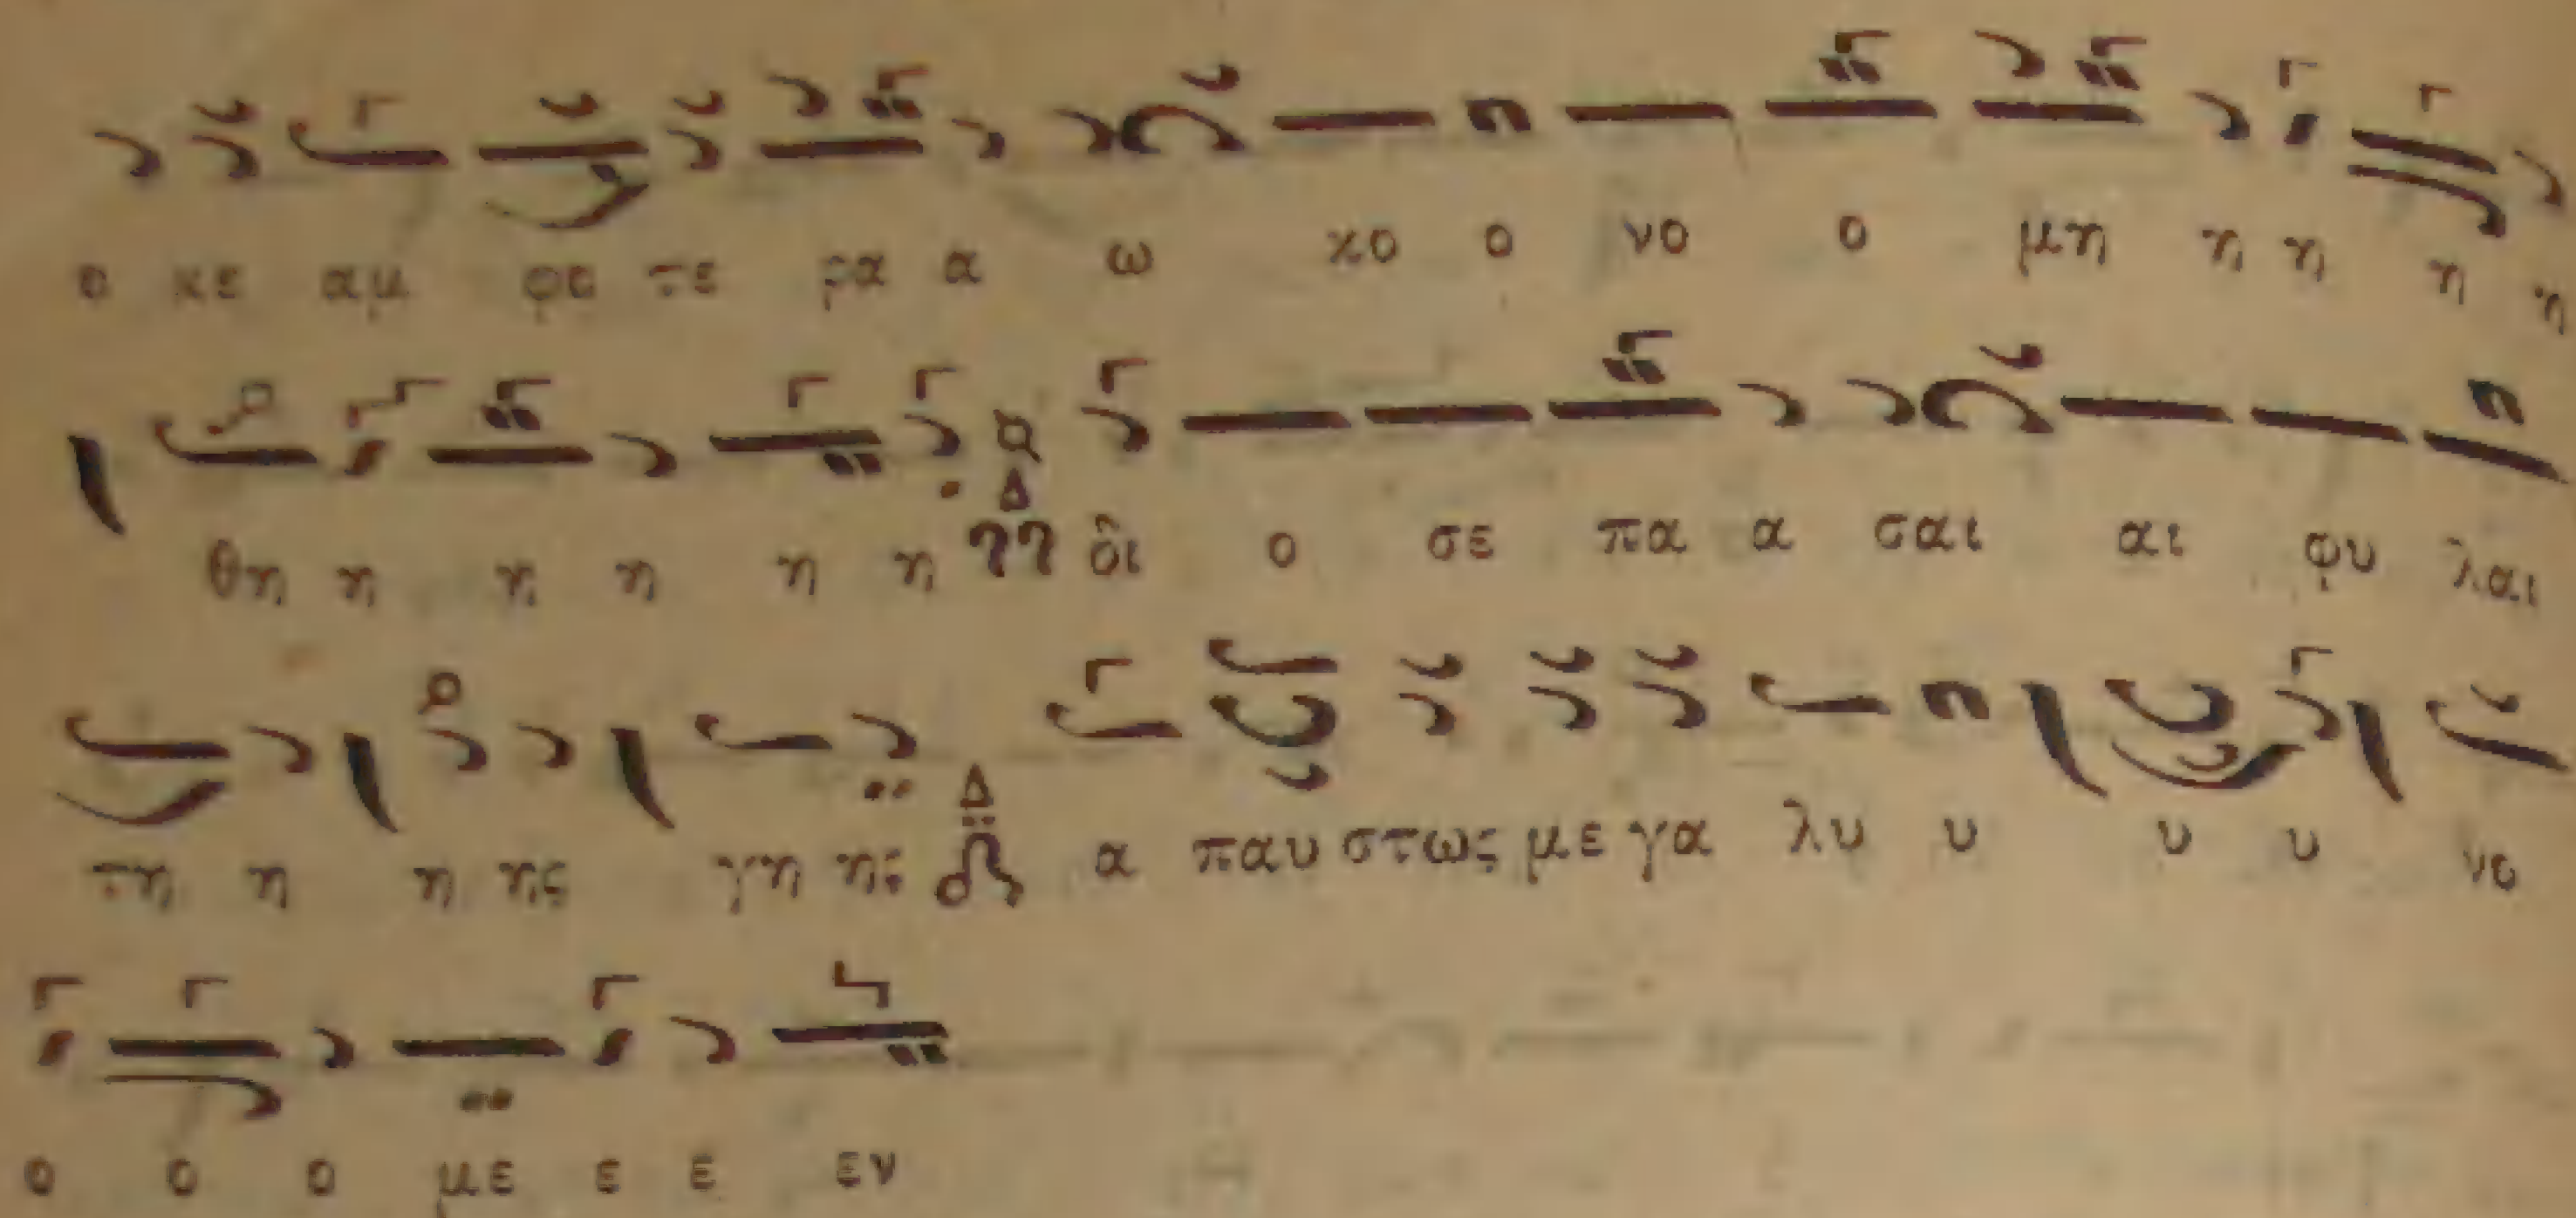 ο κε αμ φο τε ρα α ω κο ο νο ο μη η η η η
θη η η η η η δι ο σε πα α σαι αι φυ λαι
τη η η ης γη ης Δ α παυ στως με γα λυ υ υ υ νο
ο ο ο με ε ε εν